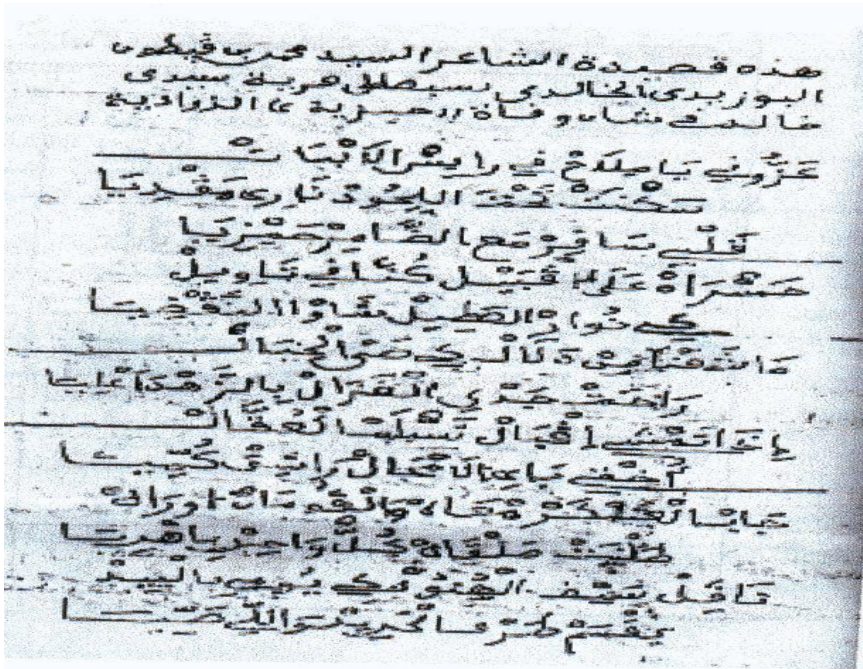 هذه قصيدة الشاعر السيد محمد بن قيطون
البوزيدي الخالدي سيدي
خالد في شان وفاة حيزية من الذوادية
عَزُّونِي يَا مِلَاحْ فِي رَايِسْ الْبْنَاتْ
سَكْنَتْ تَحْتْ اللُّحُودْ نَارِي مَقْدِيَا
قَلْبِي سَافَرْ مَعَ الضَّامَرْ حَيْزِيَا
حَسْرَاهْ عَلَى قْبَيْلْ كُنَّا فِي تَاوِيلْ
كِي نُوَّارْ الْعَطِيلْ شَاوْ النَّقْضِيَا
مَا شَفْنَا مِنْ دَلَالْ كِي ضَيّ الْخْيَالْ
رَاحَتْ جَدْيِ الْغْزَالْ بِالزَّهْدْ عْلِيَا
إِذَا تَمْشِي اقْبَالْ تَسْلَبْ الْعُقَّالْ
بَايْ الْمْحَالْ رَاشَقْ كُمِّيَا
جَابْ الْعَسْكَرْ مْعَاهْ وَالْقُومْ اوْرَاهْ
مَلْقَاهْ كُلّْ وَاحَدْ بِهْدِيَا
نَاقَلْ سَيْفْ الْهْنُودْ كِي يُومِي بِالْيَدّْ
يَقْسَمْ طَرْفْ الْحْدِيدْ وَالَّا صَمِّيَا